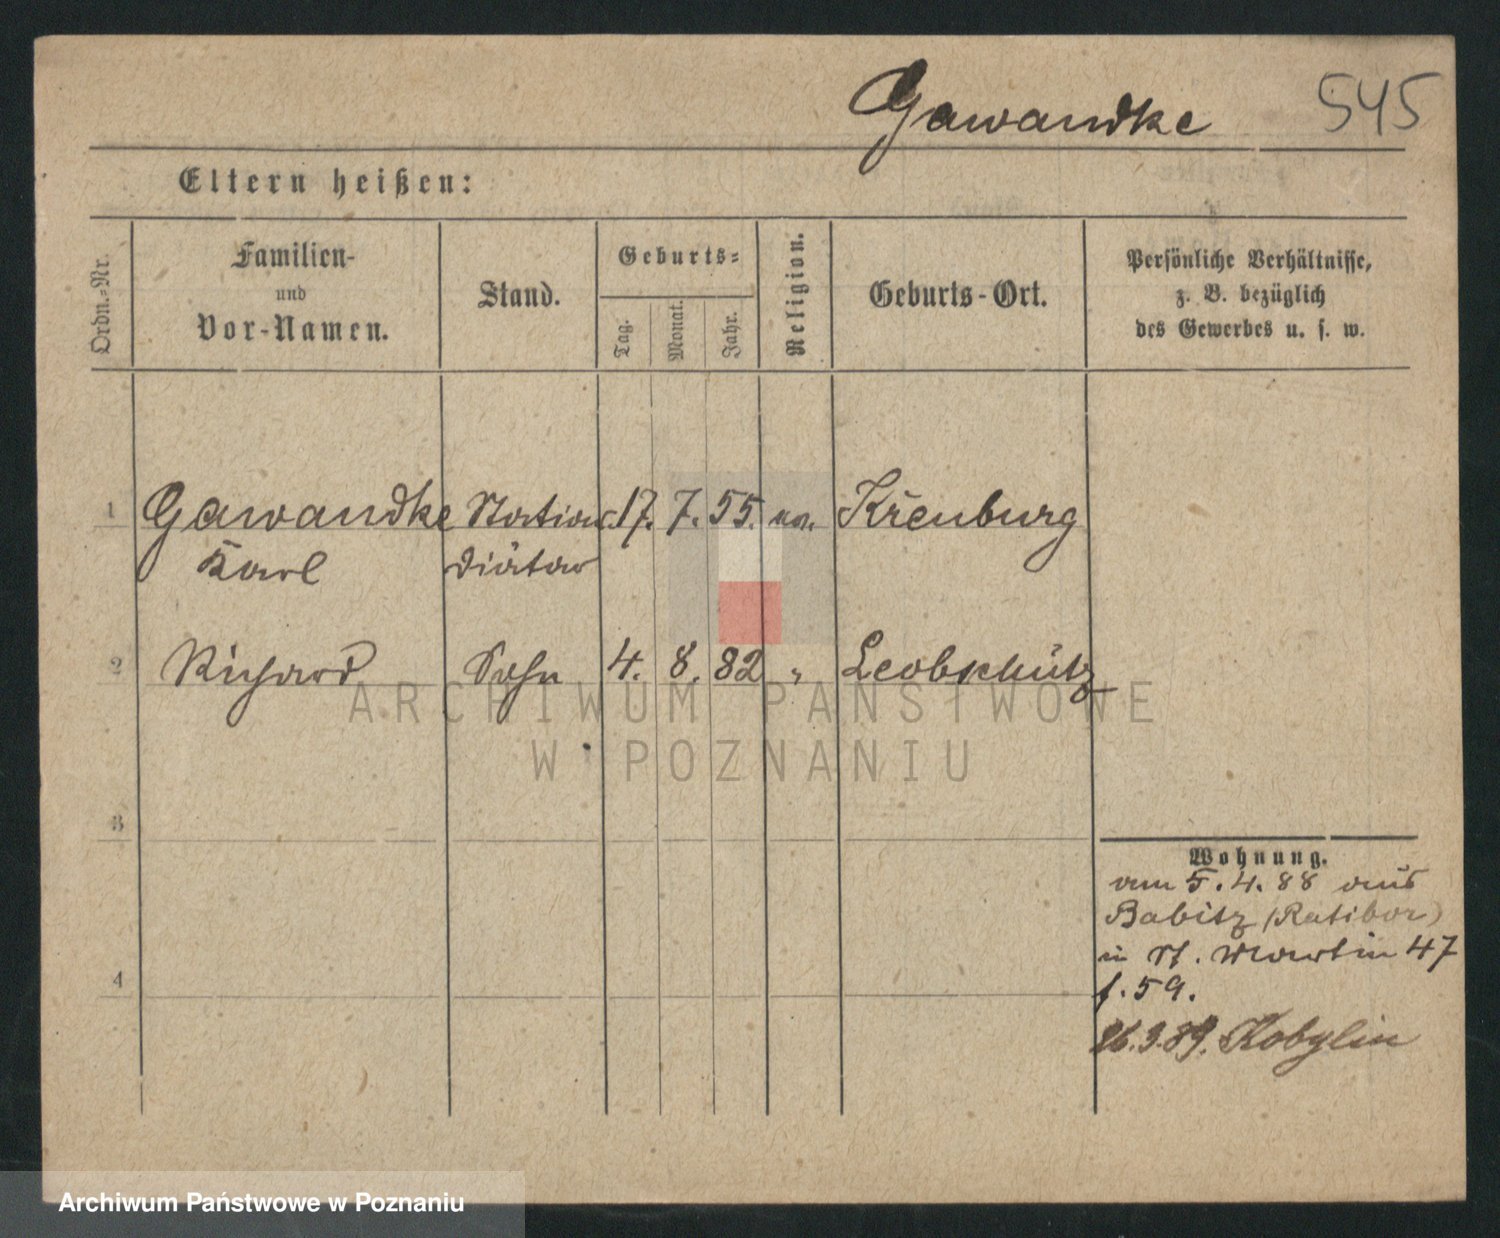 Gawandke 545
Eltern heißen:
Ordn.-Nr. Familien- und Vor-Namen. Stand. Geburts- Tag. Monat. Jahr. Religion. Geburts-Ort. Persönliche Verhältnisse, z. B. bezüglich des Gewerbes u. s. w.
1 Gawandke Stations 17. 7. 55. ev. Kreuburg
Karl Diätar
2 Richard Sohn 4. 8. 82 " Leobschütz
ARCHIWUM PAŃSTWOWE
W POZNANIU
3
Wohnung.
am 5.4.88 aus
Babitz (Ratibor)
in St. Martin 47
4
f. 59.
26.3.89. Kobylin
Archiwum Państwowe w Poznaniu